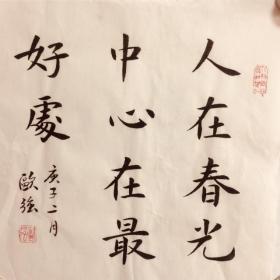 人在春光
中心在最
好處
庚子二月
歐強